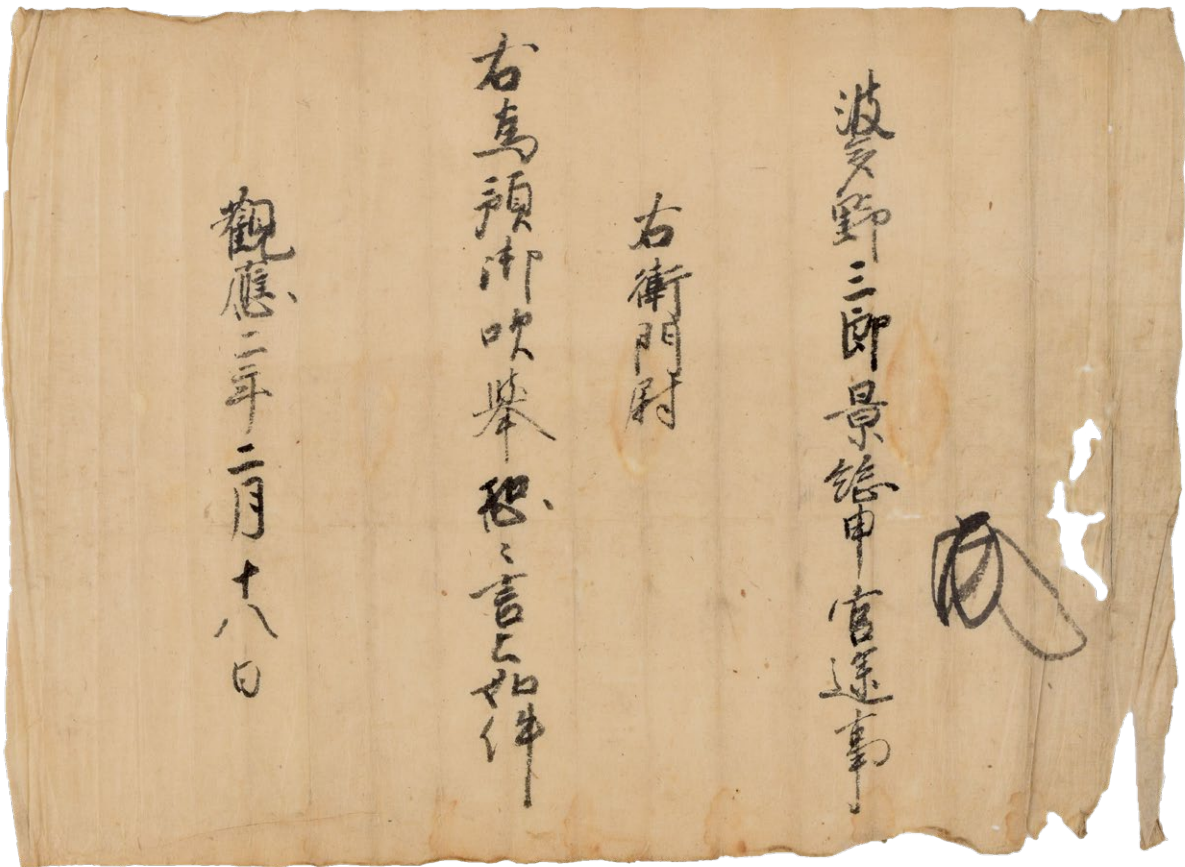 波多野三郎景高申官途事
右衛門尉
右為預御吹挙恐〻言上如件
觀應二年二月十八日